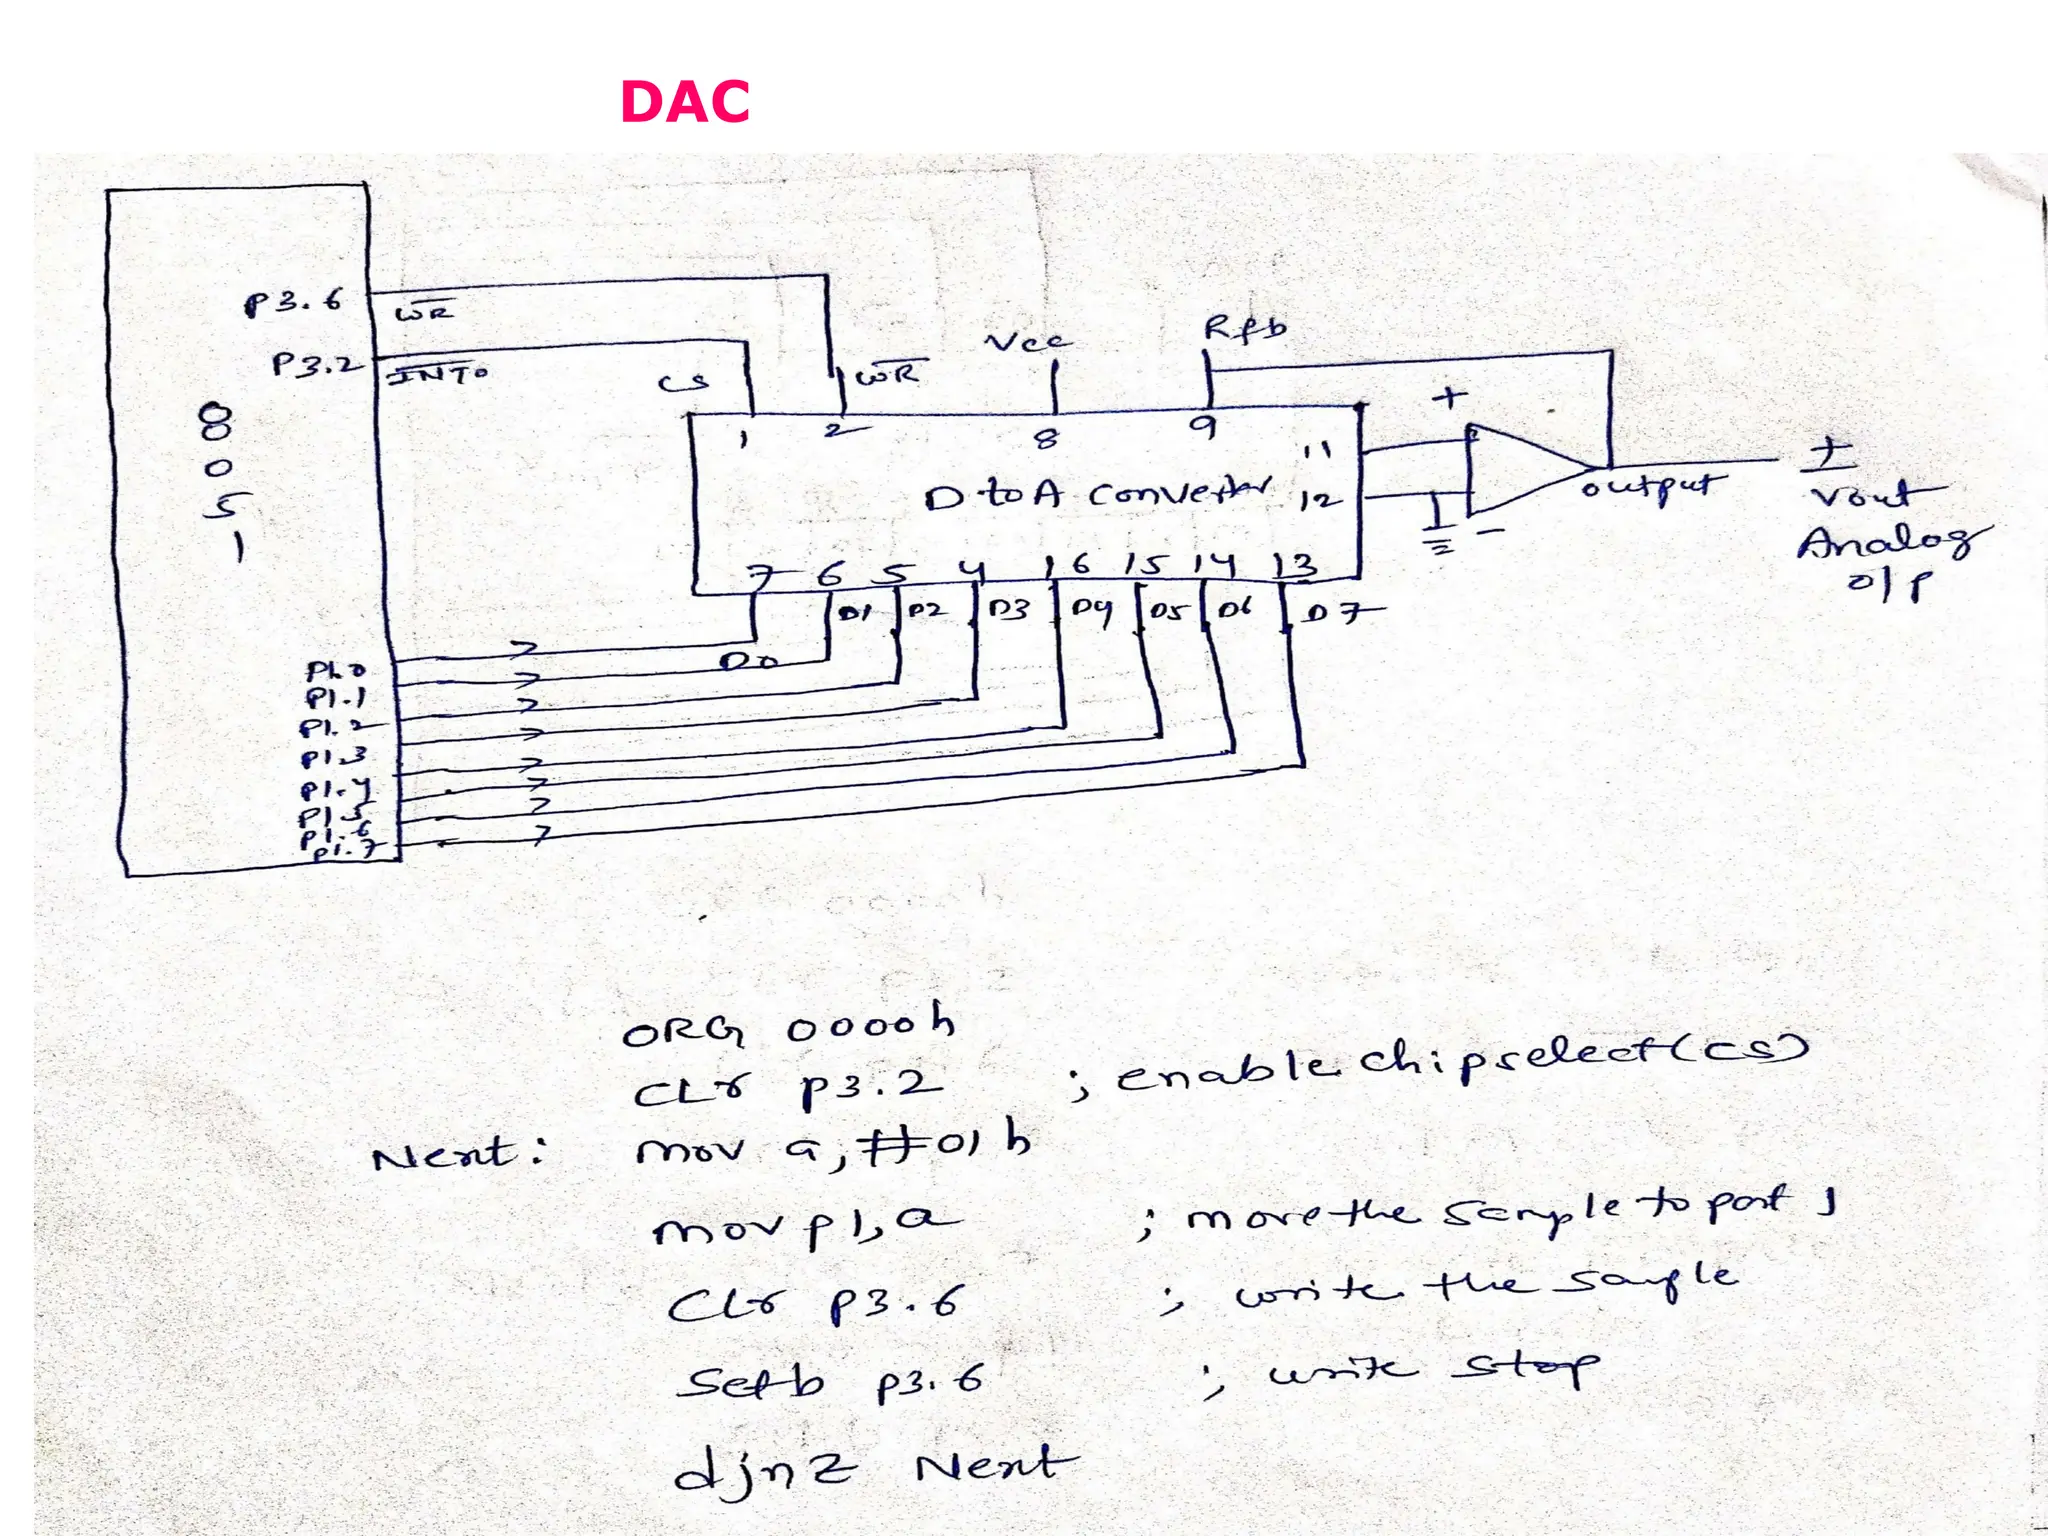 DAC
P3.6 WR
P3.2 INT0
CS WR Vcc Rfb
8051
1 2 8 9
+
11
D to A Converter 12
-
output
+
Vout
Analog
o/p
7 6 5 4 16 15 14 13
D0 D1 D2 D3 D4 D5 D6 D7
P1.0
P1.1
P1.2
P1.3
P1.4
P1.5
P1.6
P1.7
ORG 0000h
CLr P3.2 ; enable chipselect(cs)
Next: mov a,#01h
mov p1,a ; move the sample to port 1
Clr P3.6 ; write the sample
Setb p3.6 ; write stop
djnz Next